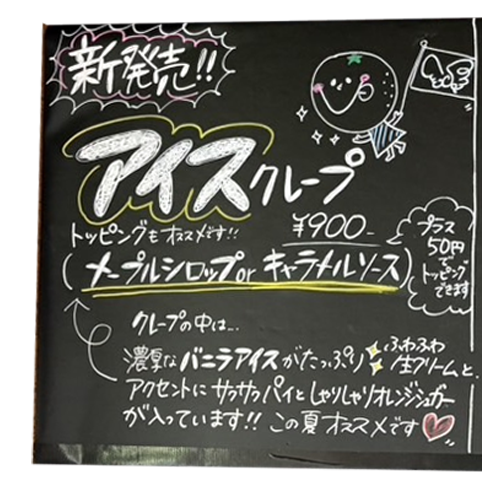 新発売!!
アイスクレープ
¥900-
トッピングもオススメです!!
(メープルシロップorキャラメルソース)
プラス
50円
で
トッピング
できます
クレープの中は…
濃厚なバニラアイスがたっぷり ふわふわ生クリームと、
アクセントにサクサクパイとしゃりしゃりオレンジシュガー
が入っています!! この夏オススメです